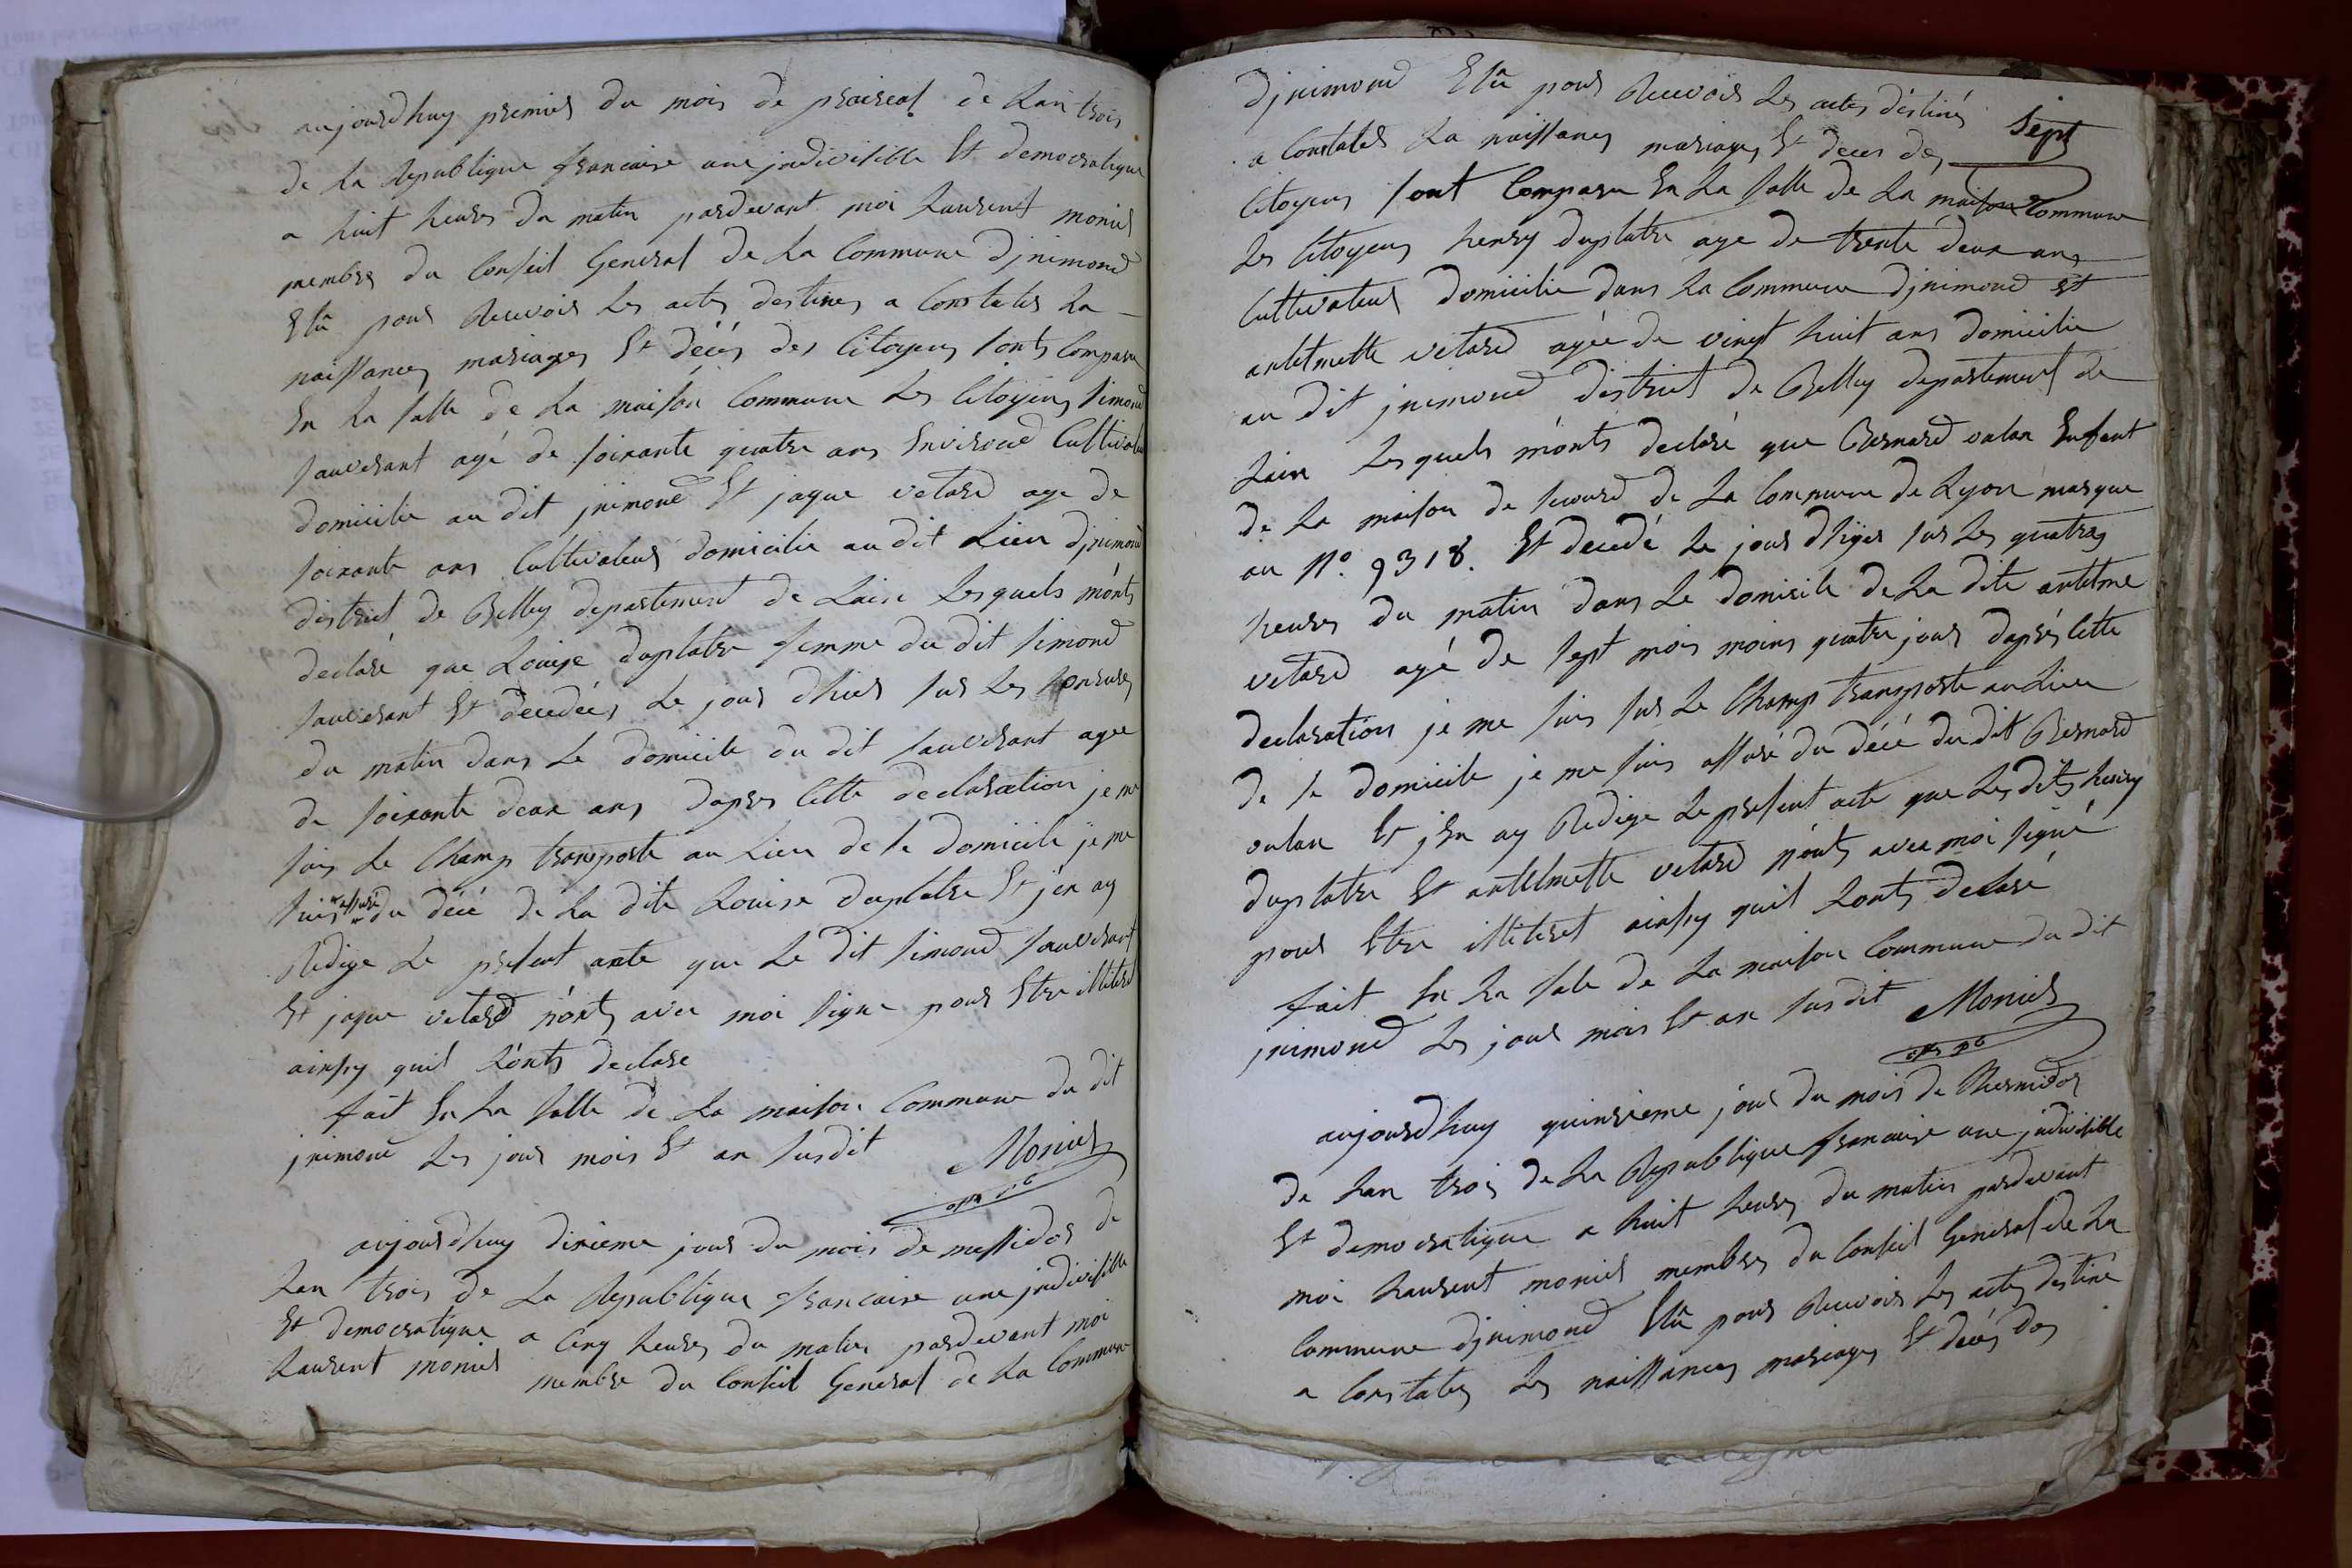 aujourdhuy premier du mois de prairial de Lan trois
de La Republique francaise une jndivisible Et democratique
a huit heures du matin pardevant moi Laurent monier
membre du Conseil General de La Commune djnimond
Elû pour Recevoir Les actes destines a Constater La
naissances mariages Et décés des Citoyens sonts Comparu
En La salle de La maison Commune Les Citoyens simond
sauverant agé de soixante quatre ans Environd Cultivateur
domicilie au dit jnimond Et jaque vetard age de
soixante ans Cultivateur domicilie au dit Lieu djnimond
district de Belley departement de Lain Lesquels mónts
declaré que Louise duplatre femme du dit simond
sauverant Et decedées Le jour dhier sur Les
du matin dans Le domicile du dit sauverant agee
de soixante deux ans dapres Cette declaration je me
suis Le Champ transporte au Lieu de se domicile je me
suis assuré du décé de La dite Louise duplatre Et jen ay
Redige Le present acte que Le dit simond sauverant
Et jaque vetard nónts avec moi signe pour Etre illiteré
ainsy quil Lónts declare
fait En La salle de La maison Commune du dit
jnimond Les jour mois Et an susdit Monier
aujourdhuy dixieme jour du mois de messidor de
Lan trois de La Republique francaise une jndivisible
Et democratique a Cinq heures du matin pardevant moi
Laurent monier membre du Conseil General de La Commune
djnimond Elû pour Recevoir Les actes déstinés
sept
a Constater La naissances mariages Et deces des
Citoyens sont Comparu En La salle de La maison Commune
Les Citoyens henry duplatre age de trente deux ans
Cultivateur domicilie dans La Commune djnimond Et
antelmette vetard agée de vingt huit ans domicilie
au dit jnimond district de Belley departement de
Lain Lesquels mónts declaré que Bernard Enfant
de La maison de secourd de La Commune de Lyon marque
au No. 9318. Et decedé Le jour dhiyer sur Les quatres
heures du matin dans Le domicile de La dite antelme
vetard agé de sept mois moins quatre jours daprés Cette
declaration je me suis sur Le Champ transporte au Lieu
de se domicile je me suis assuré du décé du dit Bernard
Et jEn ay Redige Le present acte que Les dits henry
duplatre Et antelmette vetard nónts avec moi signé
pour Etre illiteret ainsy quil Lonts declaré
fait En La sale de La maison Commune du dit
jnimond Les jour mois Et an susdit Monier
aujourdhuy quinzieme jour du mois de thermidor
de Lan trois de La Republique francaise une jndivisible
Et democratique a huit heures du matin pardevant
moi Laurent monier membres du Conseil General de La
Commune djnimond Elû pour Recevoir Les actes destiné
a Constates Les naissances mariages Et décés des